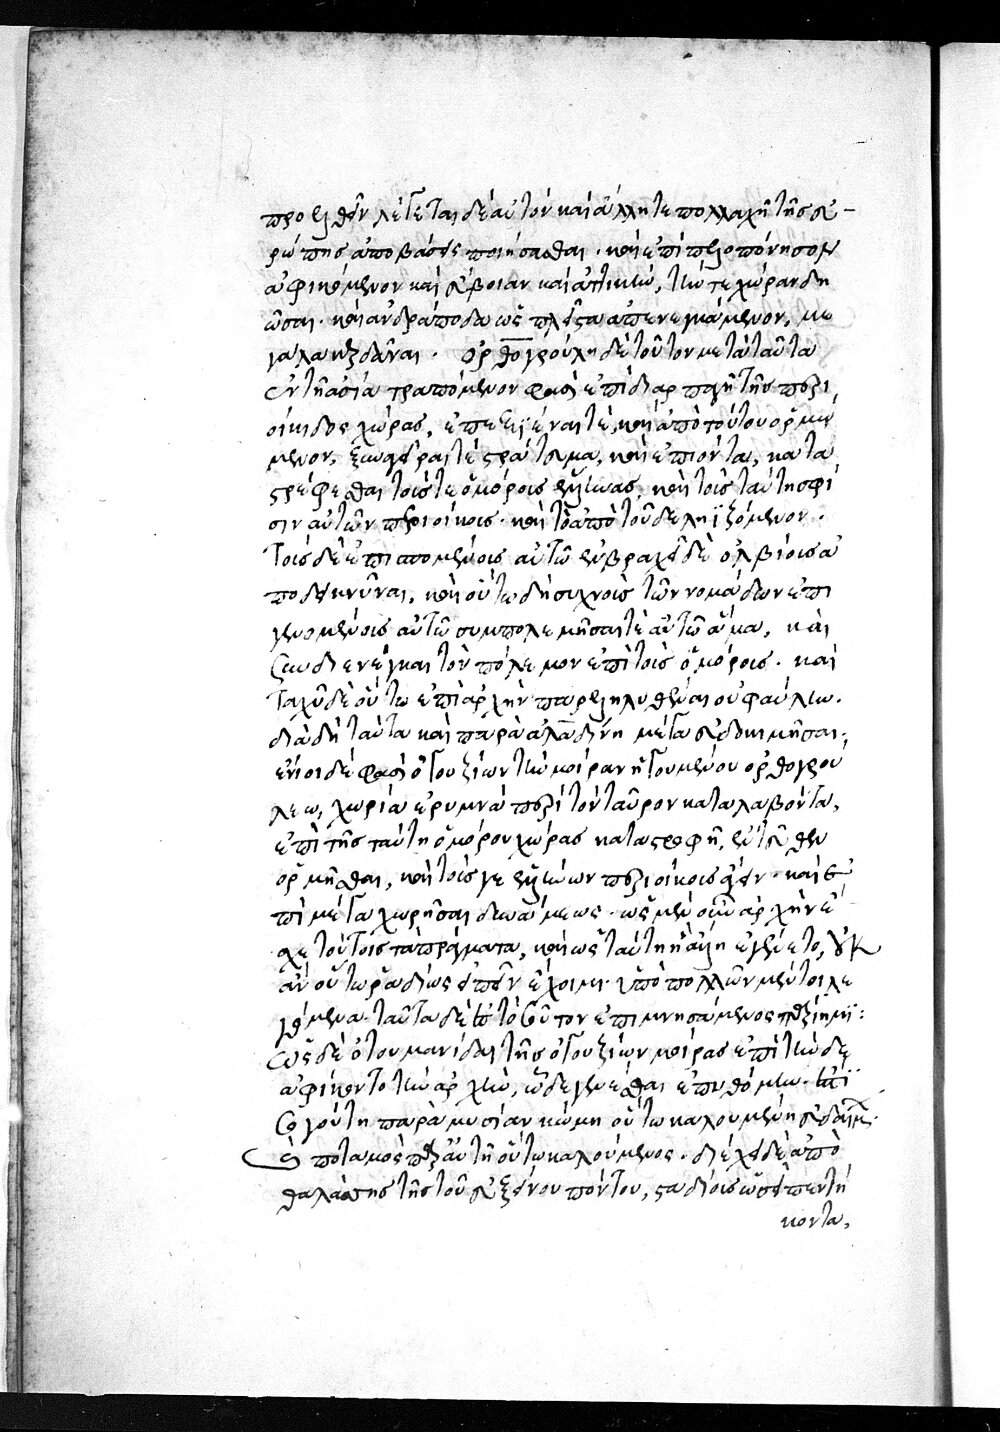 προελθεῖν λέγεται δὲ αὐτὸν καὶ ἄλλῃ τε πολλαχῆ τῆς εὐ-
ρώπης ἀποβάσεις ποιήσασθαι. καὶ ἐπὶ πελοπόννησον
ἀφικόμενον καὶ εὔβοιαν καὶ ἀττικὴν, τήν τε χώραν δῃ
ῶσαι. καὶ ἀνδράποδα ὡς πλεῖστα ἀπενεγκάμενον, με
γάλα κερδᾶναι. ὀρθογρούλη δὲ τοῦτον μετὰ ταῦτα
ἐν τῇ ἀσία τραπόμενον φασὶν ἐπὶ διαρπαγῇ τῆς περι
οίκιδος χώρας, ἐπεξιέναι τὲ, καὶ ἀπὸ τούτου ὁρμώ
μενον, ξυναγεῖραι τὲ στράτευμα, καὶ ἐπιόντα, κατα
στρέφεσθαι τούς τε ὁμόρους ἕλληνας, καὶ τοὺς ταύτῃ σφί
σιν αὐτῶν περιοίκους. καὶ τὸ ἀπὸ τοῦδε ληϊζόμενον.
τοὺς δὲ ἐπισπομένους αὐτῶ ἐν βραχεῖ δὲ ὀλβίους ἀ
ποδεικνῦναι, καὶ οὕτω δὴ συχνοὺς τῶν νομάδων ἐπι
γενομένους αὐτῶ συμπολεμῆσαι τὲ αὐτῶ ἅμα, καὶ
ξυνδιενέγκαι τὸν πόλεμον ἐπὶ τοὺς ὁμόρους. καὶ
ταχὺ δὲ οὕτω ἐπὶ ἀρχὴν παρεληλυθέναι οὐ φαύλην.
διὰ δὴ ταῦτα καὶ παρὰ ἀλαδίνῃ μέγα εὐδοκιμῆσαι.
ἔνιοι δέ φασὶν ὀγουζίων τὴν μοίραν ἡγουμένου ὀρθογρού
λεω, χωρία ἐρυμνὰ περὶ τὸν ταῦρον καταλαβόντα,
ἐπὶ τῆς ταύτῃ ὁμόρου χώρας καταστροφῇ, ἐντεῦθεν
ὁρμῆσθαι, καὶ τούς γε ἑλλήνων περιοίκους ἑλεῖν. καὶ ἐ
πὶ μέγα χωρῆσαι δυνάμεως. ὡς μὲν οὖν ἀρχὴν εἶ
χε τούτοις τὰ πράγματα, καὶ ὡς ταύτῃ ἢ ἄλλῃ ἐγένετο, οὐκ
ἂν οὕτω ῥαδίως εἰπεῖν ἔχοιμι. ὑπὸ πολλῶν μέντοι λε
γόμενα. ταῦτα δὲ ἐπὶ τοσοῦτον ἐπιμνησάμενος παρέξειμι:
ὡς δὲ ὀτουμανίδαι τῆς ὀγουζίων μοίρας ἐπὶ τήνδε
ἀφίκοντο τὴν ἀρχὴν, ὧδε γενέσθαι ἐπυθόμην. ἐπὶ
σογούτῃ παρὰ μυσίαν κώμη οὕτω καλουμένη εὐδαίμων.
ὁ ποταμὸς παρ' αὐτῇ οὕτω καλούμενος. διέχει δὲ ἀπὸ
θαλάσσης τῆς τοῦ εὐξείνου πόντου, σταδίους ὡσεὶ πεντή
κοντα,